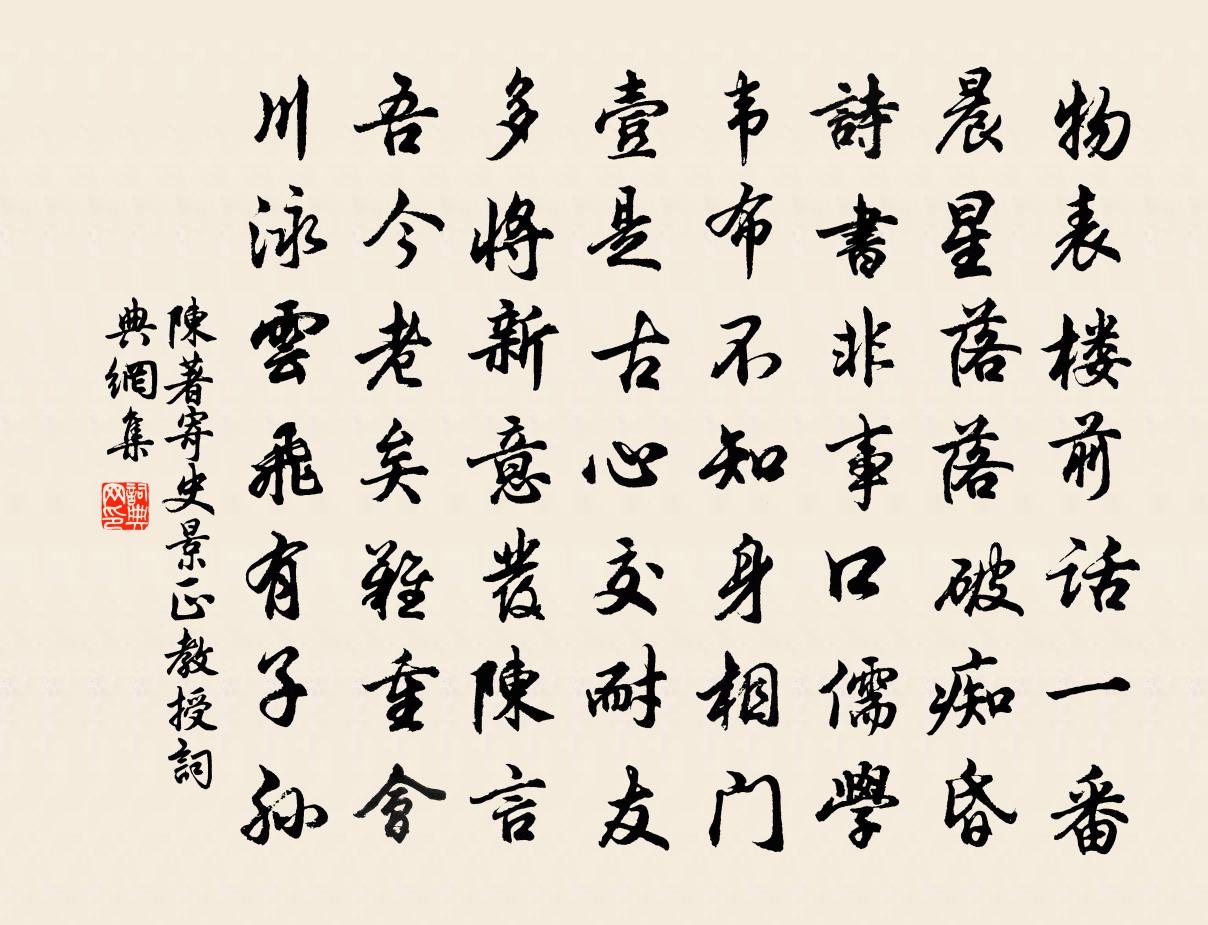 物表楼前話一番
晨星落落破痴昏
詩書非事口儒學
韦布不知身相门
壹是古心交耐友
多將新意發陳言
吾今老矣難重會
川泳雲飛有子孫
陳著寄史景正教授詞
典網集
詞典
网印